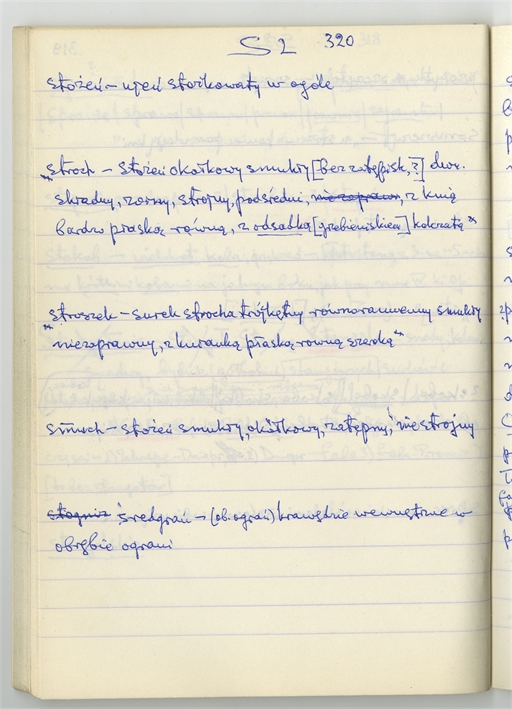 S2 320
stożeń – ujęń stożkowaty w ogóle
"stroch – stożeń okółkowy smukły [bez zatępisk,?] dwr.
składny, zorny, strojny, podsiedni, z kuią
bardzo płaską równą, z odsadką [grzebieniskiem] kolczatą"
"stroszek – surek strocha trójkętny równoramienny smukły
niezoprawny, z kuranką płaską równą szeroką"
smuch – stożeń smukły, okółkowy, zatępny, niestrojny
średgrań – (ob. ograń) krawędzie wewnętrzne w
obrębie ograni